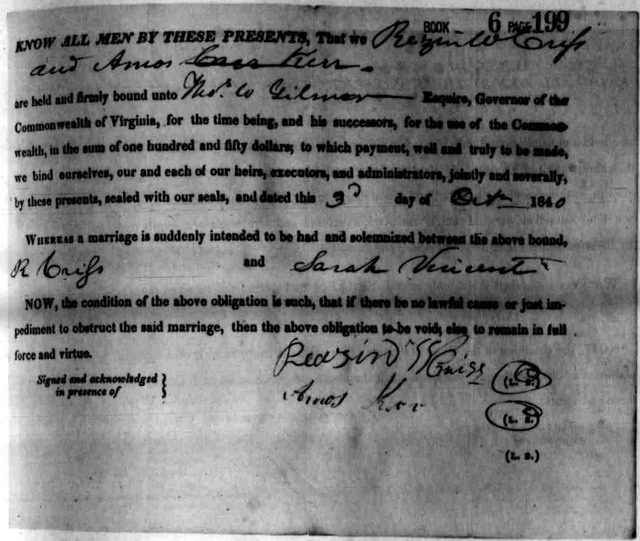 BOOK 6 PAGE 199
KNOW ALL MEN BY THESE PRESENTS, That we Reazin W Criss
and Amos Kerr.
are held and firmly bound unto Tho.s W Gilmer Esquire, Governor of the
Commonwealth of Virginia, for the time being, and his successors, for the use of the Common-
wealth, in the sum of one hundred and fifty dollars; to which payment, well and truly to be made,
we bind ourselves, our and each of our heirs, executors, and administrators, jointly and severally,
by these presents, sealed with our seals, and dated this 3d day of Octr 1840
WHEREAS a marriage is suddenly intended to be had and solemnized between the above bound,
R Criss and Sarah Vincent
NOW, the condition of the above obligation is such, that if there be no lawful cause or just im-
pediment to obstruct the said marriage, then the above obligation to be void, else to remain in full
force and virtue.
Reasin W Criss (L. S.)
Signed and acknowledged
in presence of
Amos Kerr (L. S.)
(L. S.)